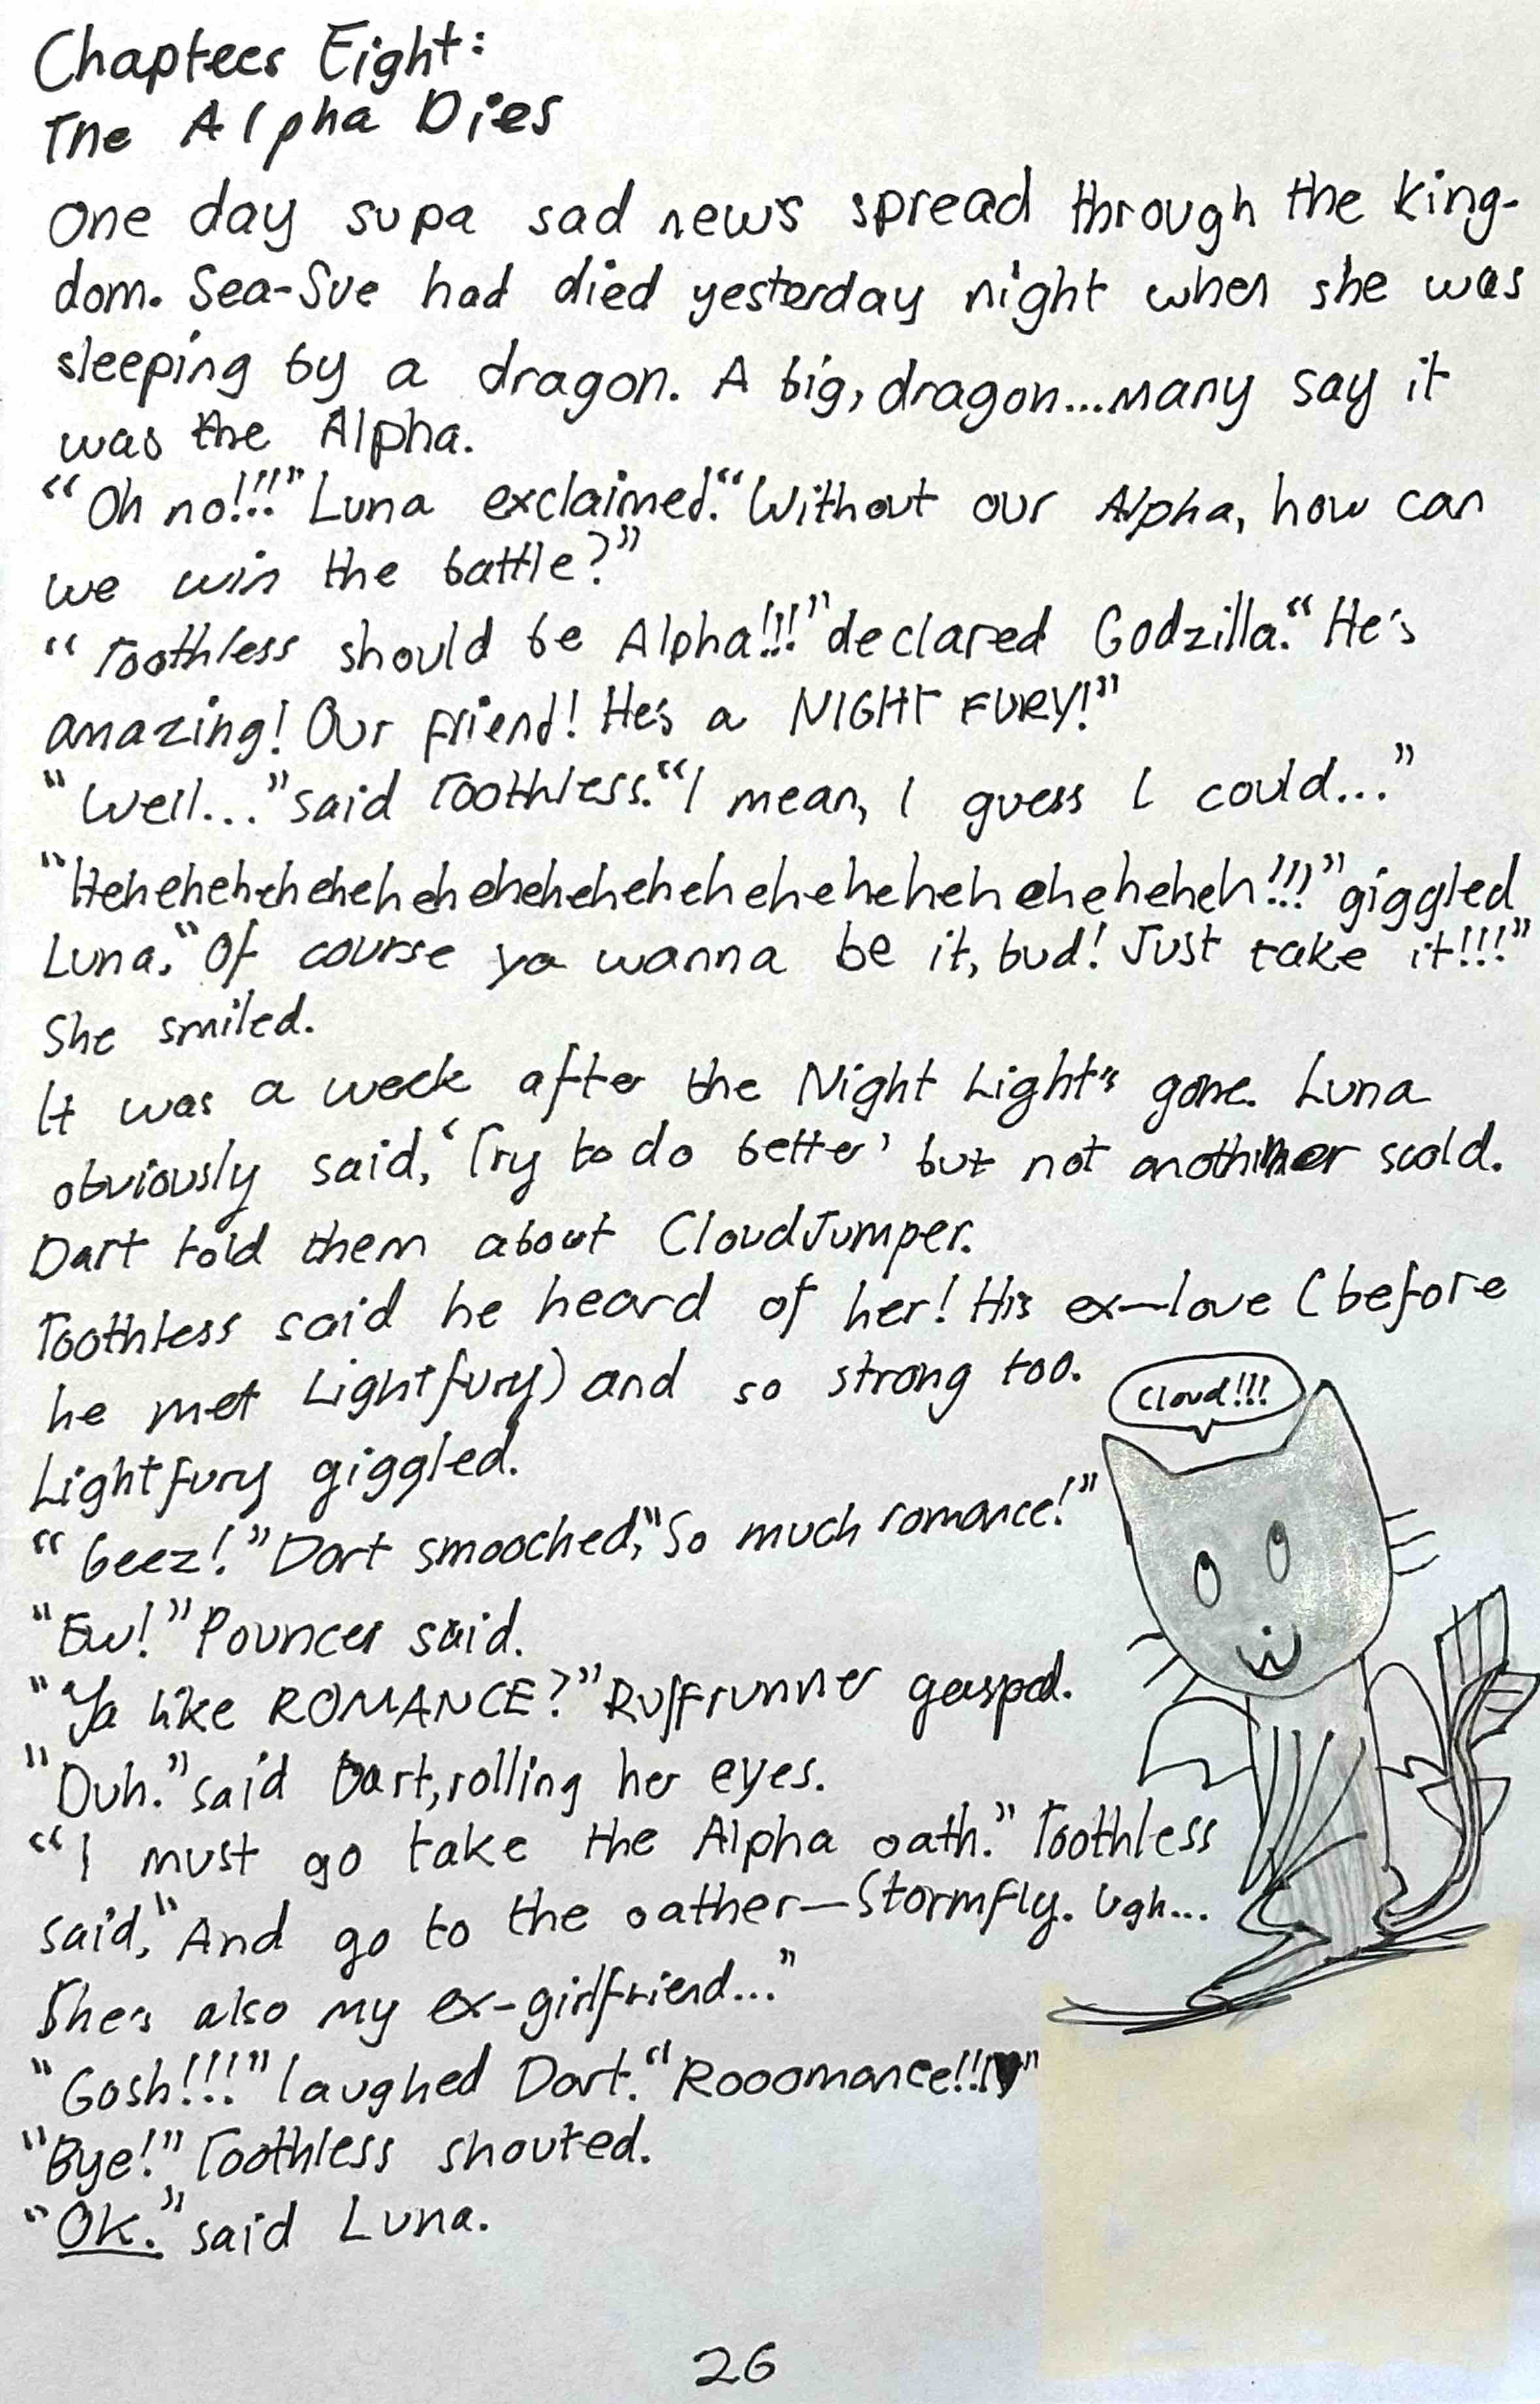 Chaptees Eight:
The Alpha Dies
One day supa sad news spread through the king-
dom. Sea-Sue had died yesterday night when she was
sleeping by a dragon. A big, dragon...many say it
was the Alpha.
"Oh no!!!" Luna exclaimed. "Without our Alpha, how can
we win the battle?"
"Toothless should be Alpha!!!" declared Godzilla. "He's
amazing! Our friend! He's a NIGHT FURY!"
"Well..." said Toothless. "I mean, I guess I could..."
"Heheheheheheheheheheheheheheheheheheheheh!!!" giggled
Luna. "Of course ya wanna be it, bud! Just take it!!!"
She smiled.
It was a week after the Night Light's gone. Luna
obviously said, 'Try to do better' but not another scold.
Dart told them about CloudJumper.
Toothless said he heard of her! His ex-love (before
he met Lightfury) and so strong too.
Cloud!!!
Lightfury giggled.
"Geez!" Dart smooched, "So much romance!"
"Ew!" Pouncer said.
"Ya like ROMANCE?" Ruffrunner gasped.
"Duh." said Dart, rolling her eyes.
"I must go take the Alpha oath." Toothless
said, "And go to the oather—Stormfly. Ugh...
She's also my ex-girlfriend..."
"Gosh!!!" laughed Dart. "Rooomance!!!♥"
"Bye!" Toothless shouted.
"OK." said Luna.
26